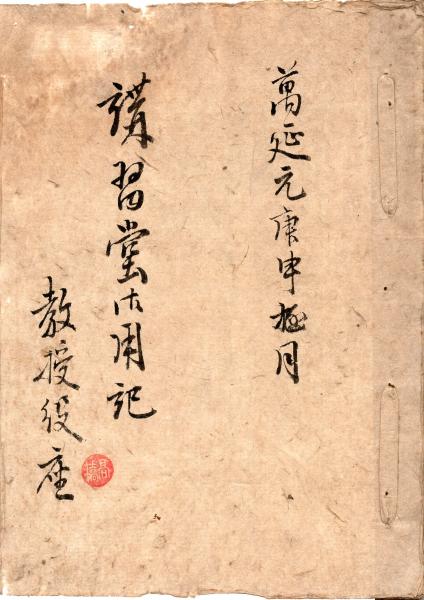 萬延元庚申極月
講習堂御用記
教授役座